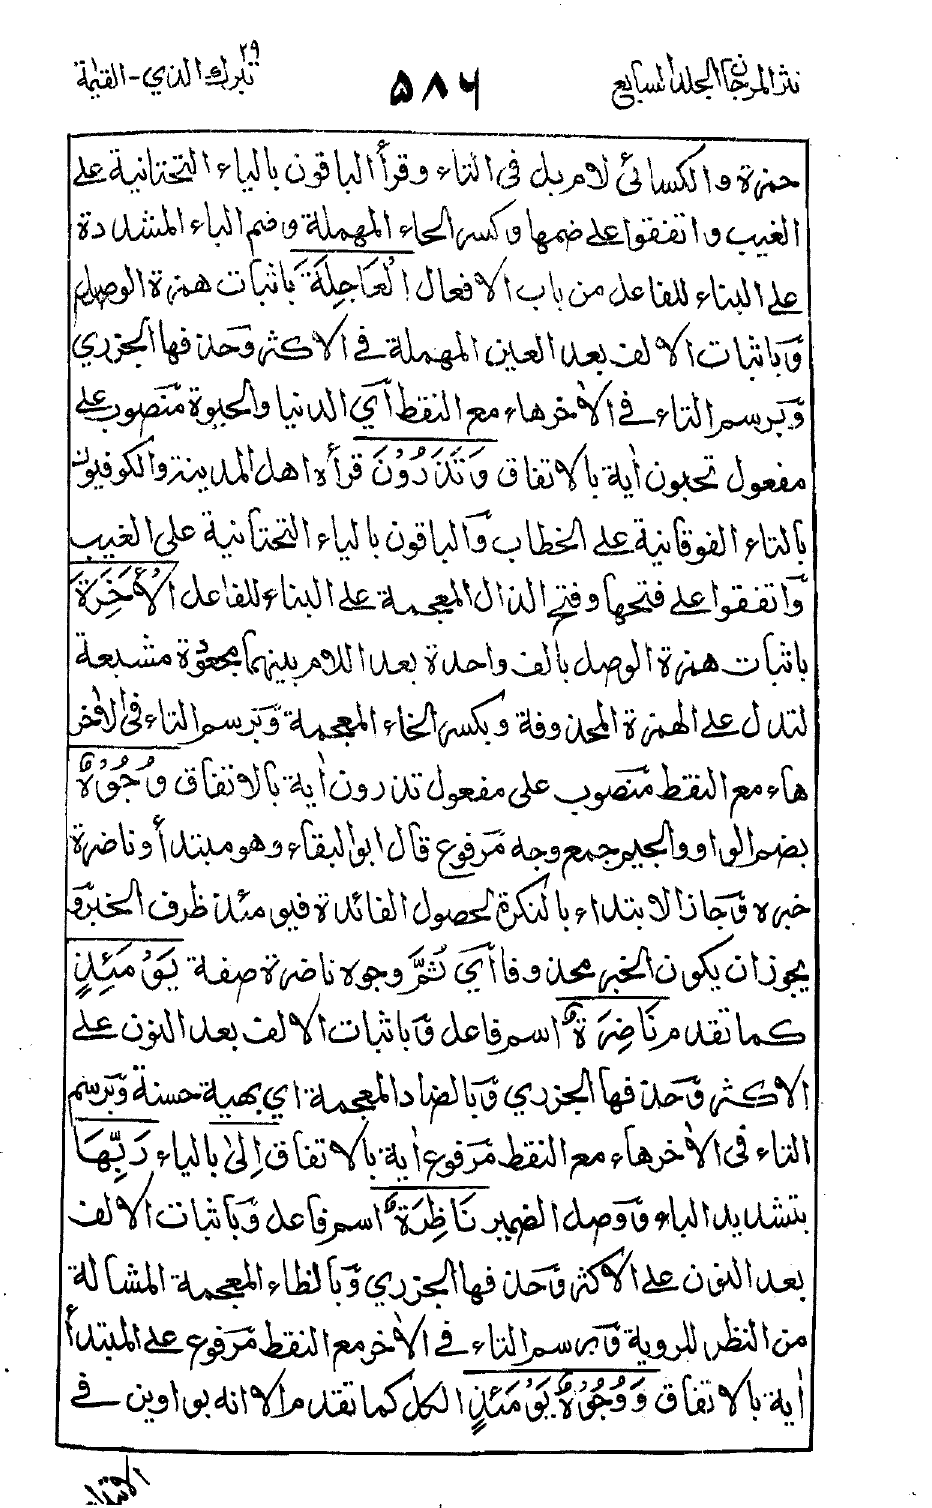 نثر المرجان الجلد السابع ۵۸۶ تبرك الذي ۲۹ - القيمة
حمزة والكسائى لام بل فى التاء وقرأ الباقون بالياء التحتانية على
الغيب واتفقوا على ضمها وكسر الحاء المهملة وضم الباء المشددة
على البناء للفاعل من باب الافعال الْعَاجِلَةَ باثبات همزة الوصل
وباثبات الالف بعد العين المهملة فى الاكثر وحذفها الجزري
وبرسم التاء فى الأخر هاء مع النقط أي الدنيا والحيوة منصوب على
مفعول تحبون أية بالاتفاق وَتَذَرُوْنَ قرأه اهل المدينة والكوفيون
بالتاء الفوقانية على الخطاب والباقون بالياء التحتانية على الغيب
واتفقوا على فتحها وفتح الذال المعجمة على البناء للفاعل الْأٰخِرَةَ
باثبات همزة الوصل بالف واحدة بعد اللام بينهما مجعودة مشبعة
لتدل على الهمزة المحذوفة وبكسر الخاء المعجمة وبرسم التاء فى الأخر
هاء مع النقط منصوب على مفعول تذرون أية بالاتفاق وُجُوْهٌ
بضم الواو والجيم جمع وجه مرفوع قال ابو البقاء وهو مبتدأ وناضرة
خبره وجاز الابتداء بالنكرة لحصول الفائدة فيومئذ ظرف الخبر و
يجوز ان يكون الخبر محذوفا أي ثَمَّ وجوه ناضرة صفة يَوْمَئِذٍ
كما تقدم نَاضِرَةٌ اسم فاعل وباثبات الالف بعد النون على
الاكثر وحذفها الجزري وبالضاد المعجمة اي بهية حسنة وبرسم
التاء فى الأخر هاء مع النقط مرفوع أية بالاتفاق اِلىٰ بالياء رَبِّهَا
بتشديد الباء ووصل الضمير نَاظِرَةٌ اسم فاعل وباثبات الالف
بعد النون على الاكثر وحذفها الجزري وبالظاء المعجمة المشالة
من النظر للروية وبرسم التاء فى الأخر مع النقط مرفوع على المبتدأ
أية بالاتفاق وَوُجُوْهٌ يَوْمَئِذٍ الكل كما تقدم الا انه بواوين فى
الابتداء